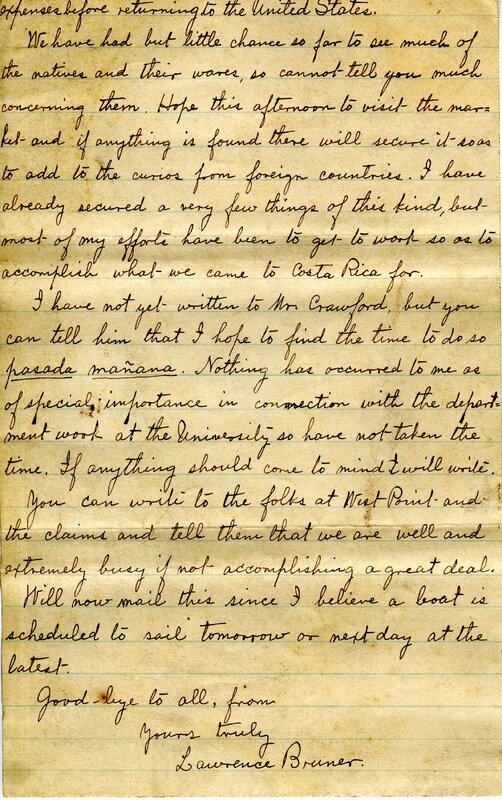 expenses before returning to the United States.
We have had but little chance so far to see much of
the natives and their wares, so cannot tell you much
concerning them. Hope this afternoon to visit the mar-
ket and if anything is found there will secure it so as
to add to the curios from foreign countries. I have
already secured a very few things of this kind, but
most of my efforts have been to get to work so as to
accomplish what we came to Costa Rica for.
I have not yet written to Mr. Crawford, but you
can tell him that I hope to find the time to do so
pasada mañana. Nothing has occurred to me as
of special importance in connection with the depart-
ment work at the University so have not taken the
time. If anything should come to mind I will write.
You can write to the folks at West Point and
the claims and tell them that we are well and
extremely busy if not accomplishing a great deal.
Will now mail this since I believe a boat is
scheduled to sail tomorrow or next day at the
latest.
Good-bye to all, from
Yours truly
Lawrence Bruner.